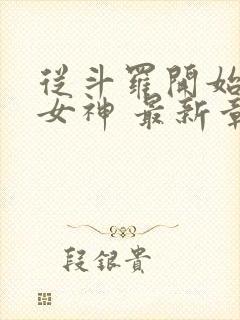 從斗羅開始
女神 最新章
段銀貴